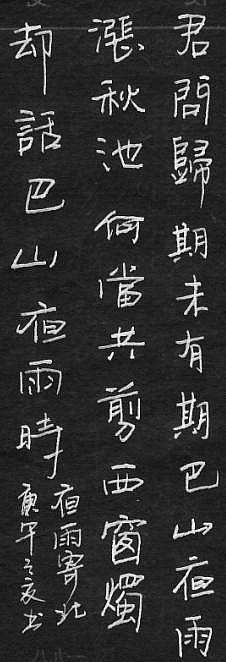 君問歸期未有期巴山夜雨
漲秋池何當共剪西窗燭
却話巴山夜雨時
夜雨寄北
庚午之夜书